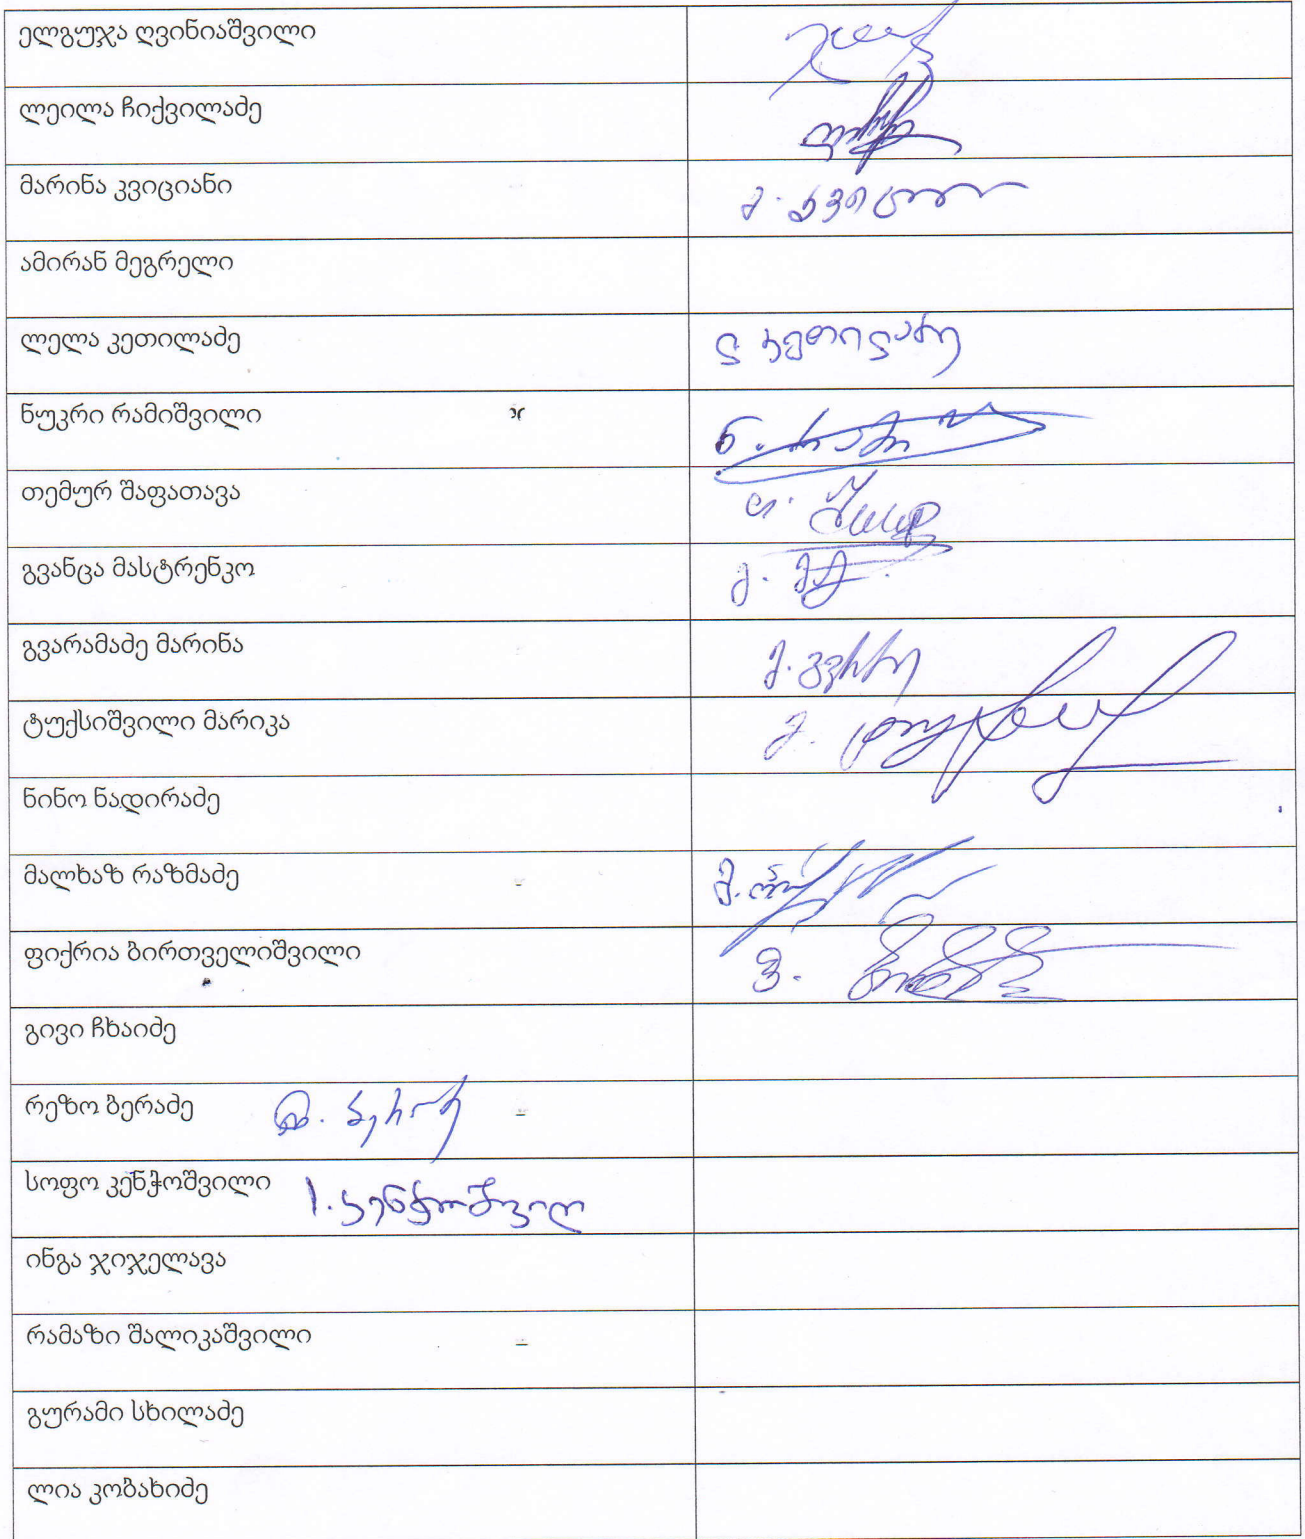 ელგუჯა ღვინიაშვილი
ლეილა ჩიქვილაძე
მარინა კვიციანი
მ. კვიც
ამირან მეგრელი
ლელა კეთილაძე
ლ. კეთილაძე
ნუკრი რამიშვილი
ნ.
თემურ შაფათავა
თ.
გვანცა მასტრენკო
გ.
გვარამაძე მარინა
მ.
ტუქსიშვილი მარიკა
მ.
ნინო ნადირაძე
მალხაზ რაზმაძე
მ.
ფიქრია ბირთველიშვილი
ფ.
გივი ჩხაიძე
რეზო ბერაძე
სოფო კენჭოშვილი ს. კენჭოშვილ
ინგა ჯიჯელავა
რამაზი შალიკაშვილი
გურამი სხილაძე
ლია კობახიძე